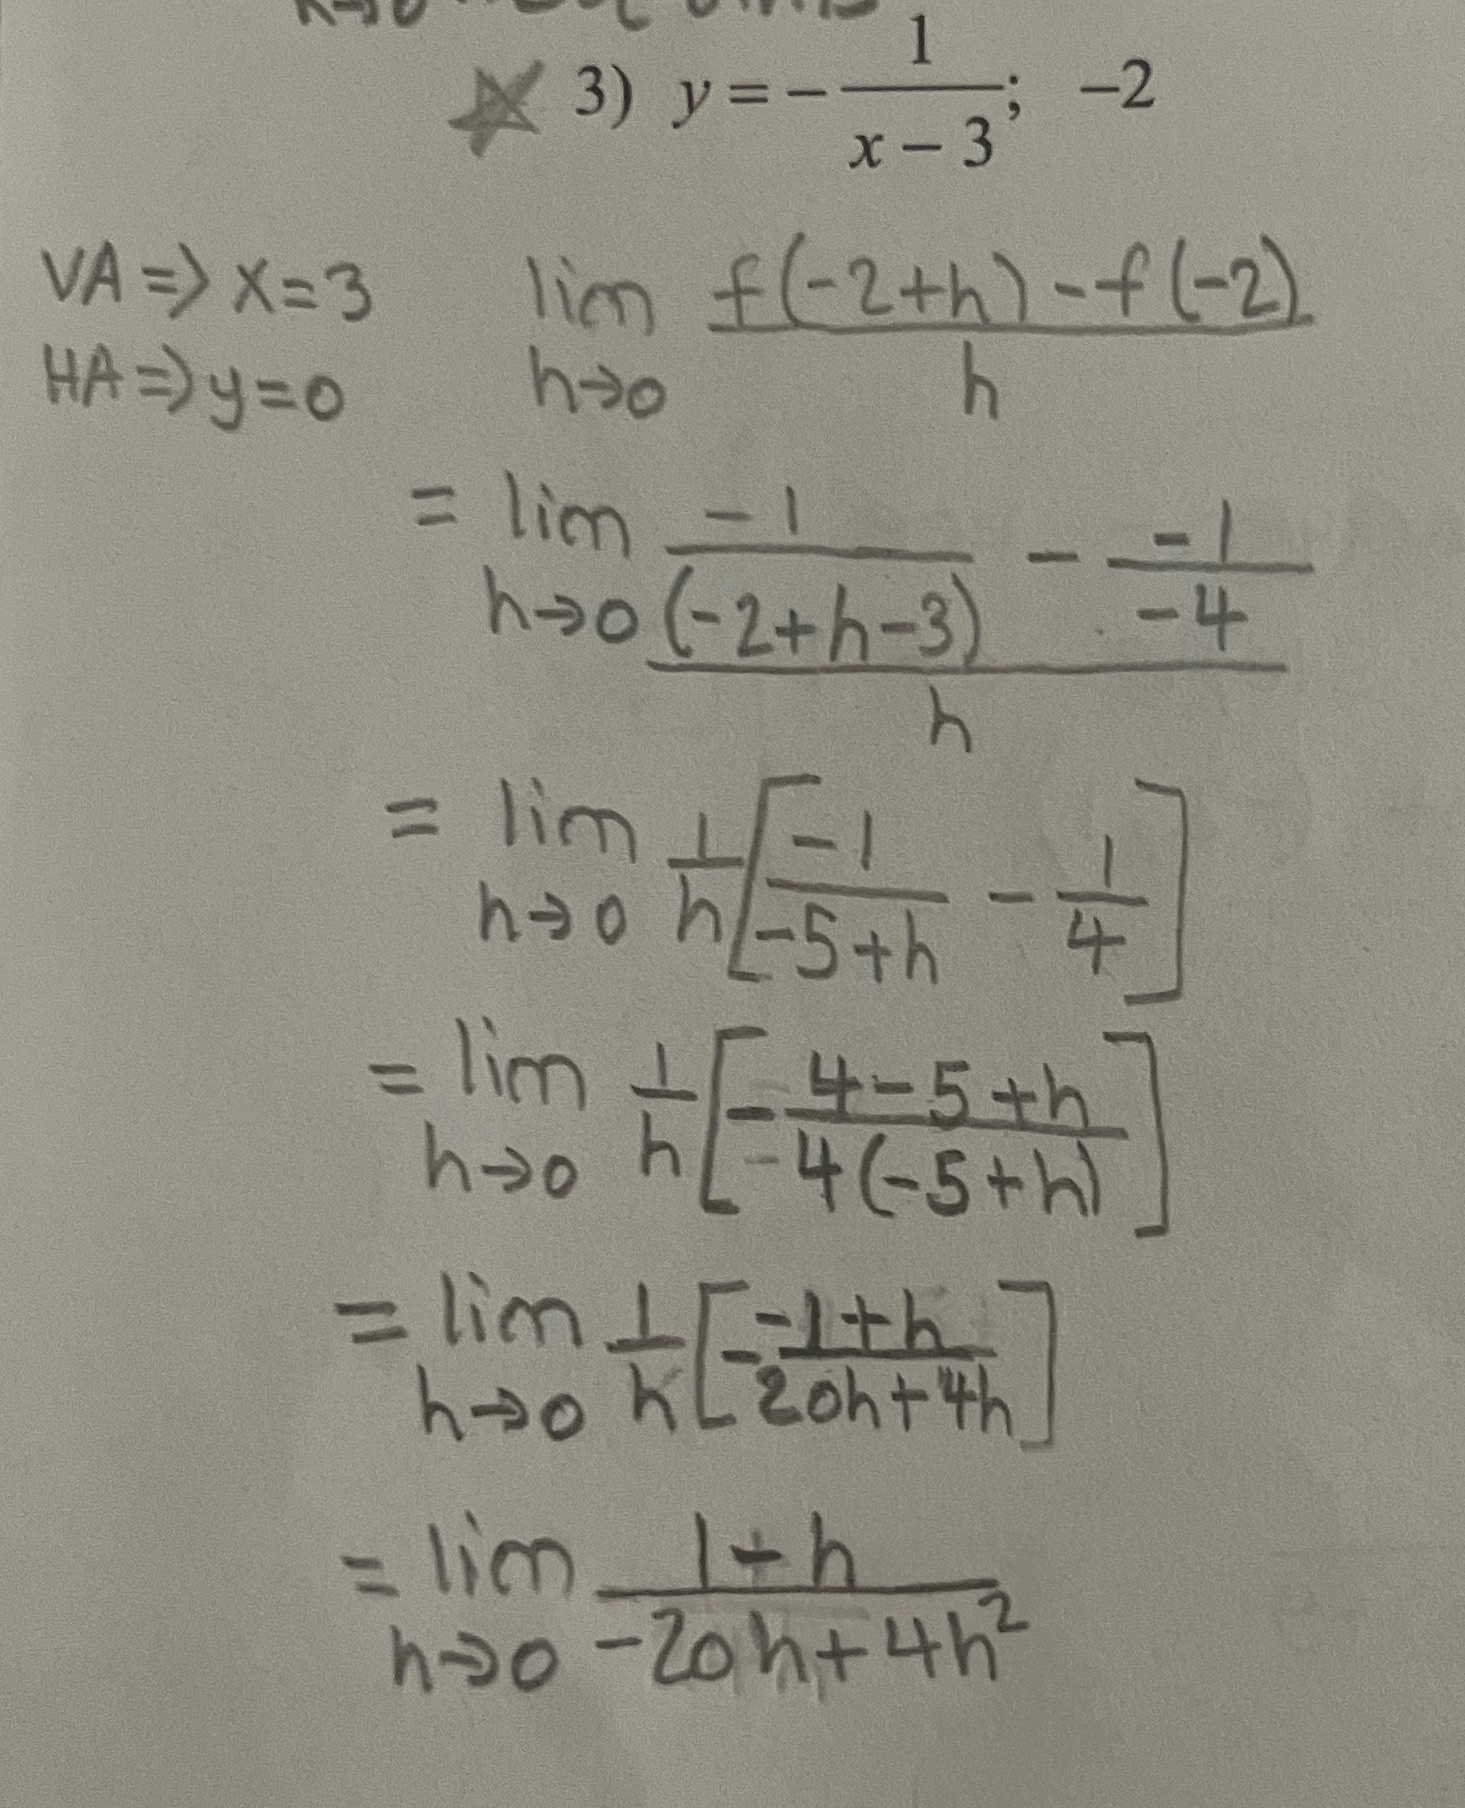 3) y = - 1/(x - 3); -2
VA => x = 3
HA => y = 0
lim h→0 (f(-2+h) - f(-2))/h
= lim h→0 (-1/(-2+h-3) - -1/-4)/h
= lim h→0 1/h [-1/(-5+h) - 1/4]
= lim h→0 1/h [- (4-5+h)/(4(-5+h))]
= lim h→0 1/h [- (-1+h)/(20h+4h)]
= lim h→0 (1-h)/(-20h+4h²)